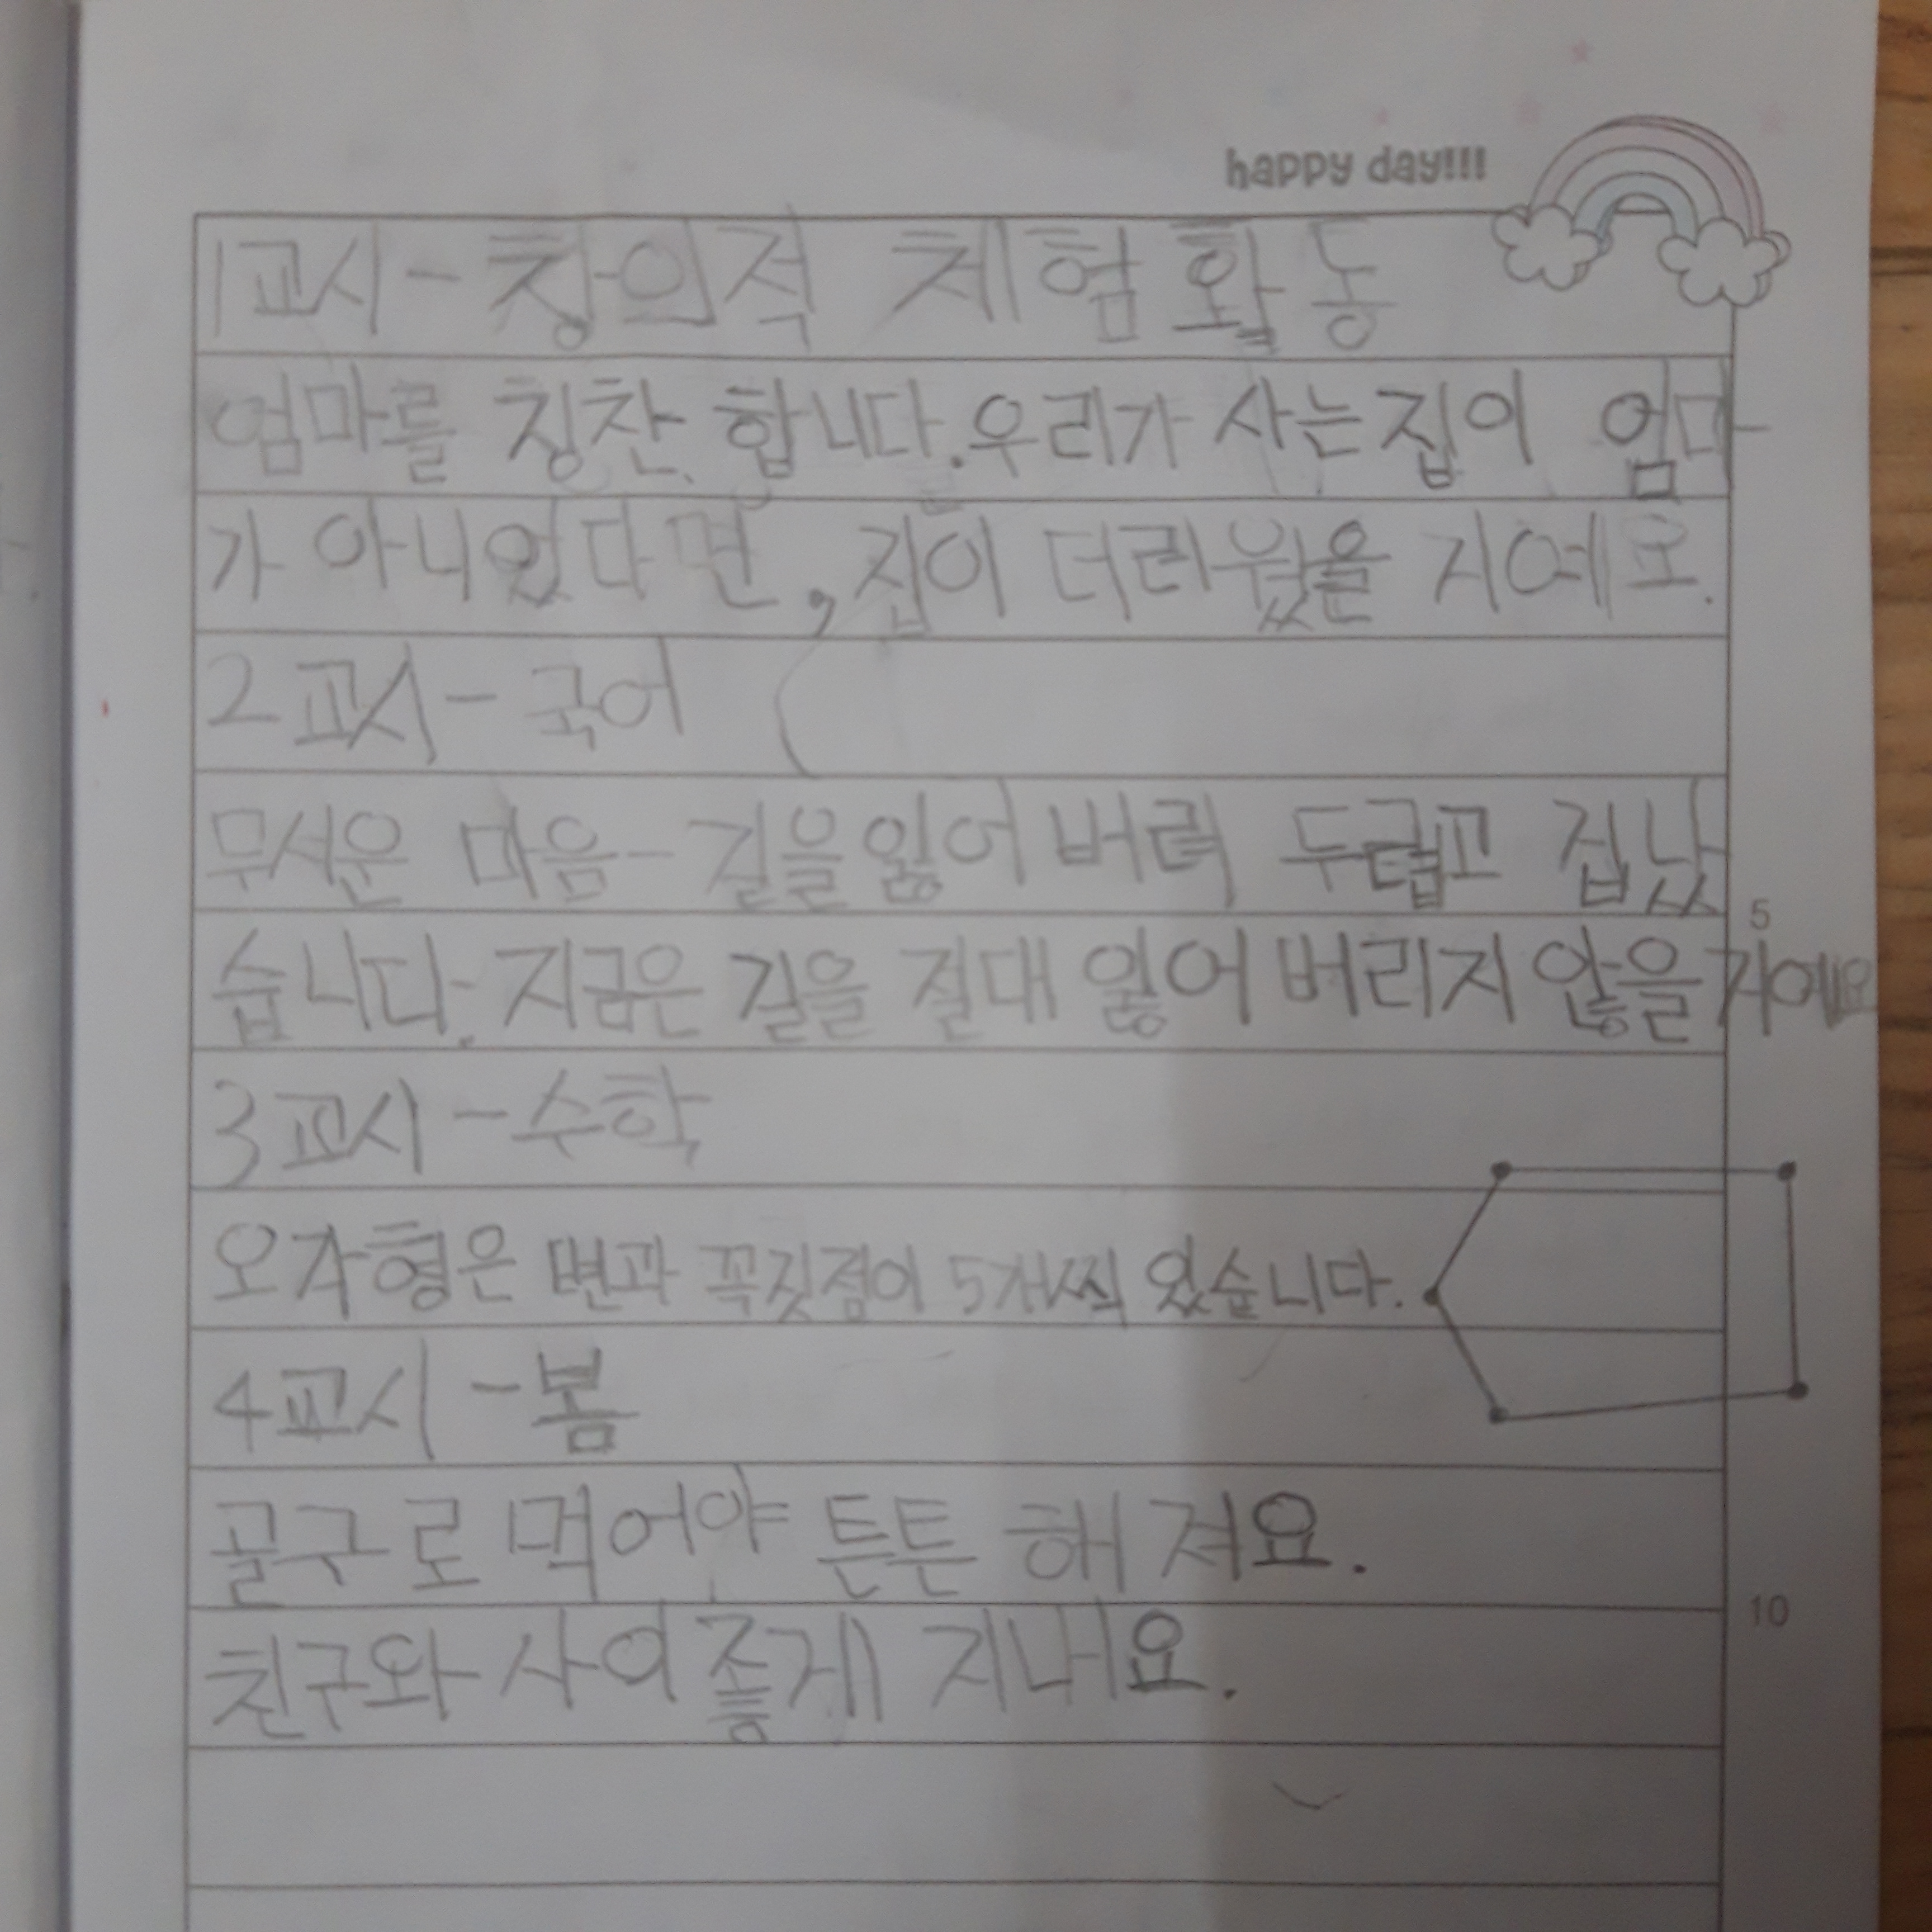 happy day!!!
1교시-창의적 체험활동
엄마를 칭찬 합니다. 우리가 사는집이 엄마
가 아니었다면, 집이 더러웠을 지예요.
2교시-국어
무서운 마음- 길을잃어버려 두렵고 겁났
5
습니다. 지금은 길을 절대 잃어버리지 않을거예요
3교시-수학
오각형은 변과 꼭짓점이 5개씩 있습니다.
4교시-봄
골구로 먹어야 튼튼 해져요.
10
친구와 사이좋게 지내요.